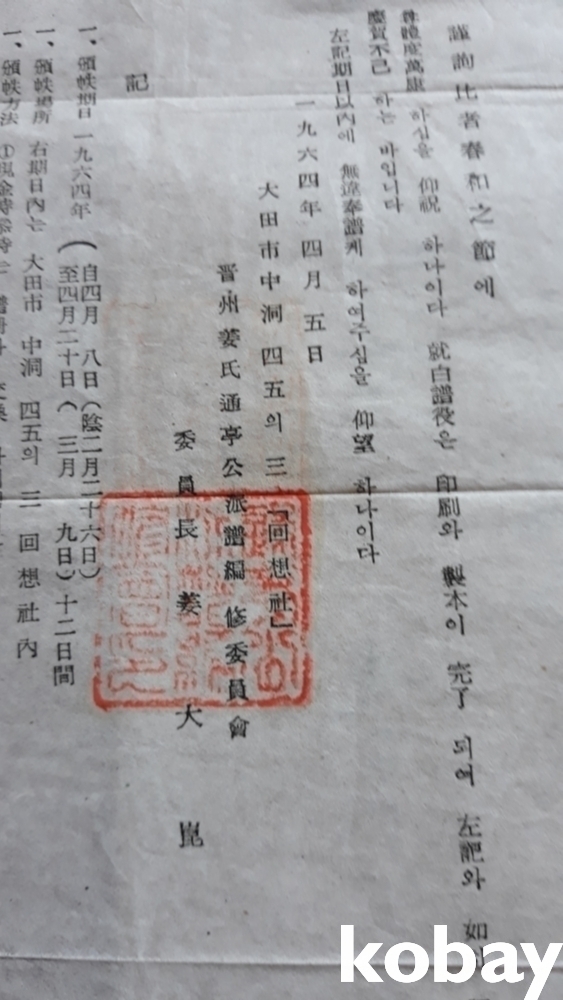 謹詢比者春和之節에
體度萬康 하심을 仰祝 하나이다 就白譜役은 印刷와 製本이 完了 되여 左記와 如
慶賀不已 하는 바입니다
左記期日以內에 無違奉譜케 하여주심을 仰望 하나이다
一九六四年 四月 五日
大田市中洞 四五의 三 「回想社」
晋州姜氏通亭公派譜編修委員會
委員長 姜 大 崑
記
一、頒帙期日 一九六四年 (自四月 八日(陰二月二十六日)
至四月二十日( 三月 九日) 十二日間
一、頒帙場所 右期日內는 大田市 中洞 四五의 三 回想社內
一、頒帙方法 ①現金
kobay